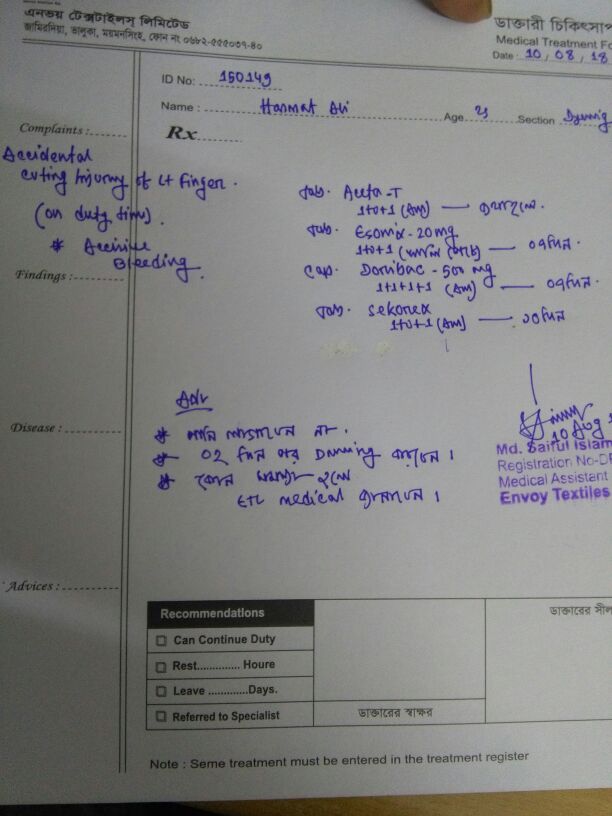 এনভয় টেক্সটাইলস্ লিমিটেড
জামিরদিয়া, ভালুকা, ময়মনসিংহ, ফোন নং ০৬৮২-৫৫৫০৩৭-৪০
ডাক্তারী চিকিৎসাপ
Medical Treatment Fo
Date : 10 / 08 / 18
ID No: 150149
Name : Hasmat Ali Age 21 Section Dyeing
Complaints :
Rx
Accidental
cuting Injurny of Lt Finger.
(on duty time).
* Accivive
Bleeding.
Findings :
Tab. Aceta-T
1+0+1 (Am) —
Tab. Esomix - 20 mg
1+0+1 — ০৭ দিন.
Cap. Domibac - 500 mg
1+1+1+1 (Am) — ০৭ দিন.
Tab. Sekonex
1+0+1 (Am) — ১০ দিন
Adv
Disease :
* পানি লাগাবেন না.
* ০২ দিন পর Dressing করাবেন।
* কোন সমস্যা হলে
ETL medical জানাবেন।
10 Aug
Md. Saiful Islam
Registration No-D
Medical Assistant
Envoy Textiles
Advices :
Recommendations
Can Continue Duty
Rest.............. Houre
Leave ............Days.
Referred to Specialist
ডাক্তারের স্বাক্ষর
ডাক্তারের সীল
Note : Seme treatment must be entered in the treatment register